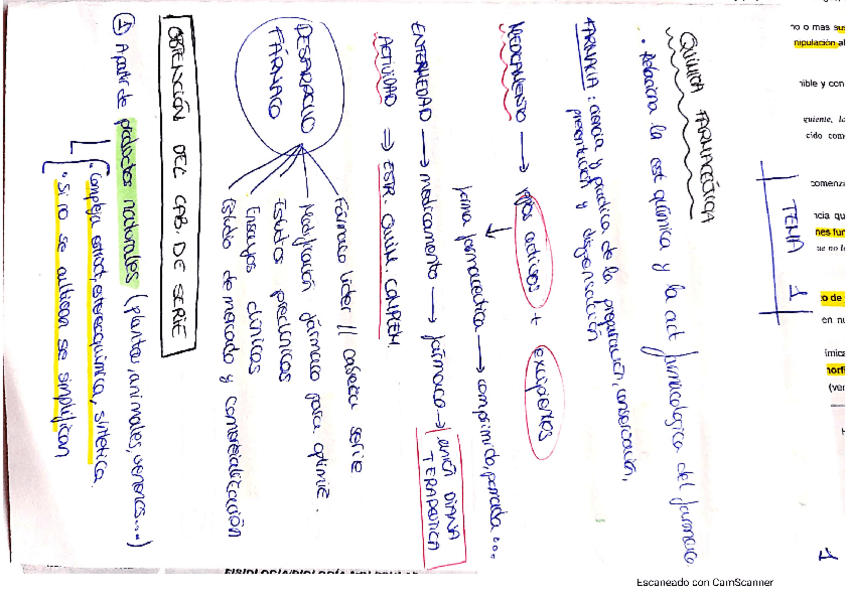 TEMA 1
1
QUÍMICA FARMACEÚTICA
• Relaciona la est química y la act farmacológica del farmaco
FARMACIA: ciencia y práctica de la preparación, conservación,
presentación y dispensación
MEDICAMENTO → ppos activos + excipientes
↓
forma farmaceútica → comprimido, pomada...
ENFERMEDAD → medicamento → fármaco → UNIÓN DIANA
TERAPEÚTICA
ACTIVIDAD ⇒ ESTR. QUIM. COMPLEM.
DESARROLLO
FÁRMACO
Fármaco líder // cabeza serie
Modificación fármaco para optimiz.
Estudios preclínicos
Ensayos clínicos
Estudio de mercado y comercialización
OBTENCIÓN DEL CAB. DE SERIE
① A partir de productos naturales (plantas, animales, venenos...)
• Compleja extract, estereoquímica, sintetica.
• Si no se cultivan se simplifican
no o mas sus
nipulación al
nible y con
guiente, la
cido com
comenza
ncia qu
nes fun
ue no l
o de
en nu
ímica
morfi
(ver
Escaneado con CamScanner